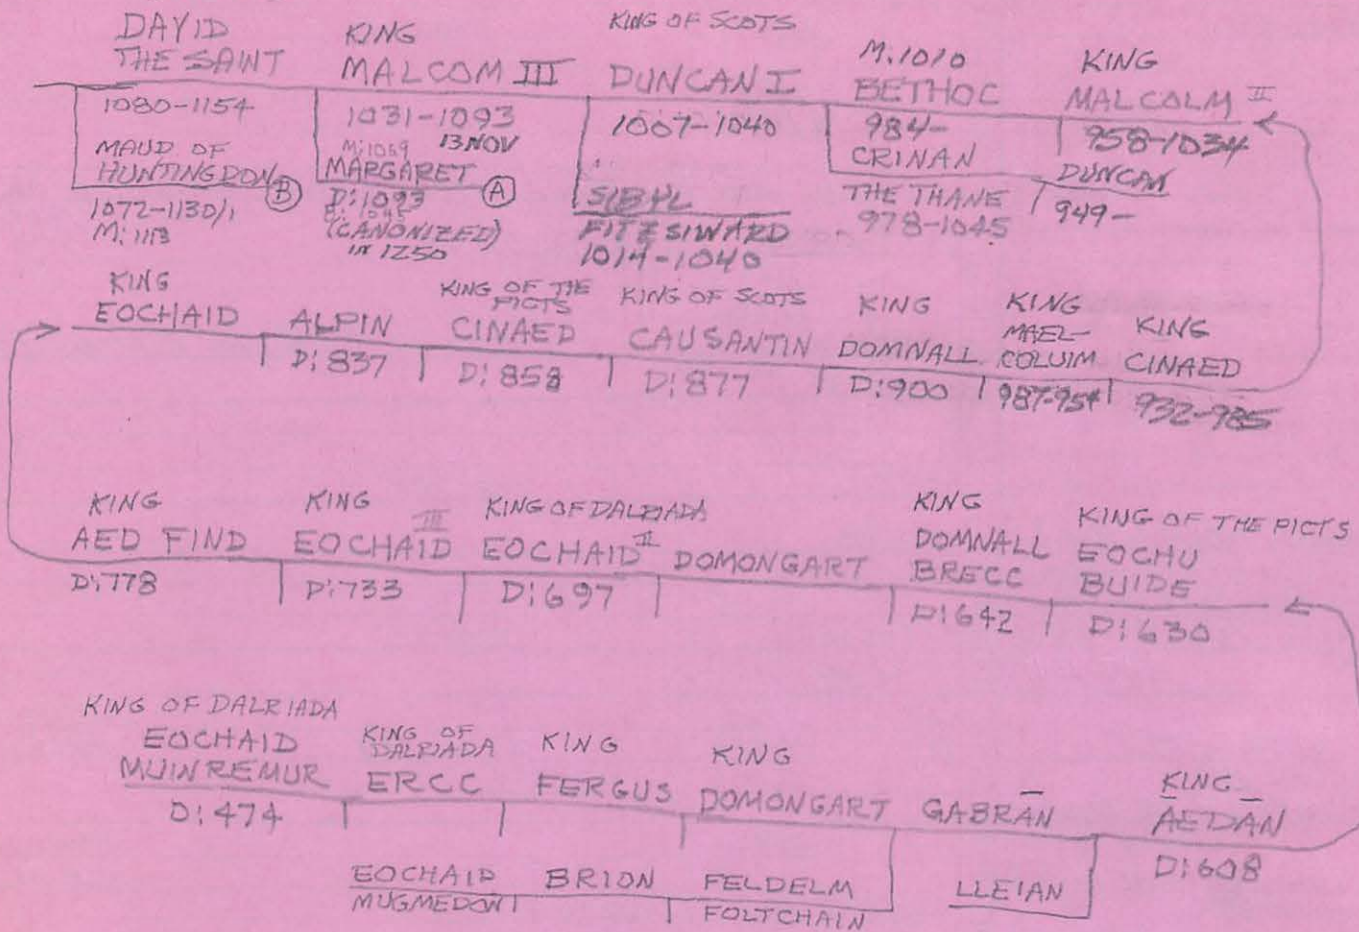 DAVID
THE SAINT
1080-1154
MAUD OF
HUNTINGDON
B
1072-1130/1
M: 1113
KING
MALCOM III
1031-1093
M: 1069 13 NOV
MARGARET
A
D: 1093
B: 1045
(CANONIZED)
IN 1250
KING OF SCOTS
DUNCAN I
1007-1040
SIBYL
FITZ SIWARD
1014-1040
M: 1010
BETHOC
984-
CRINAN
THE THANE
978-1045
KING
MALCOLM II
958-1034
DUNCAN
949-
KING
EOCHAID
ALPIN
D: 837
KING OF THE
PICTS
CINAED
D: 858
KING OF SCOTS
CAUSANTIN
D: 877
KING
DOMNALL
D: 900
KING
MAEL-
COLUIM
987-954
KING
CINAED
932-985
KING
AED FIND
D: 778
KING
EOCHAID III
D: 733
KING OF DALRIADA
EOCHAID II
D: 697
DOMONGART
KING
DOMNALL
BRECC
D: 642
KING OF THE PICTS
EOCHU
BUIDE
D: 630
KING OF DALRIADA
EOCHAID
MUINREMUR
D: 474
KING OF
DALRIADA
ERCC
KING
FERGUS
KING
DOMONGART
GABRĀN
KING
ĀEDĀN
D: 608
EOCHAID
MUGMEDON
BRION
FELDELM
FOLTCHAIN
LLEIAN